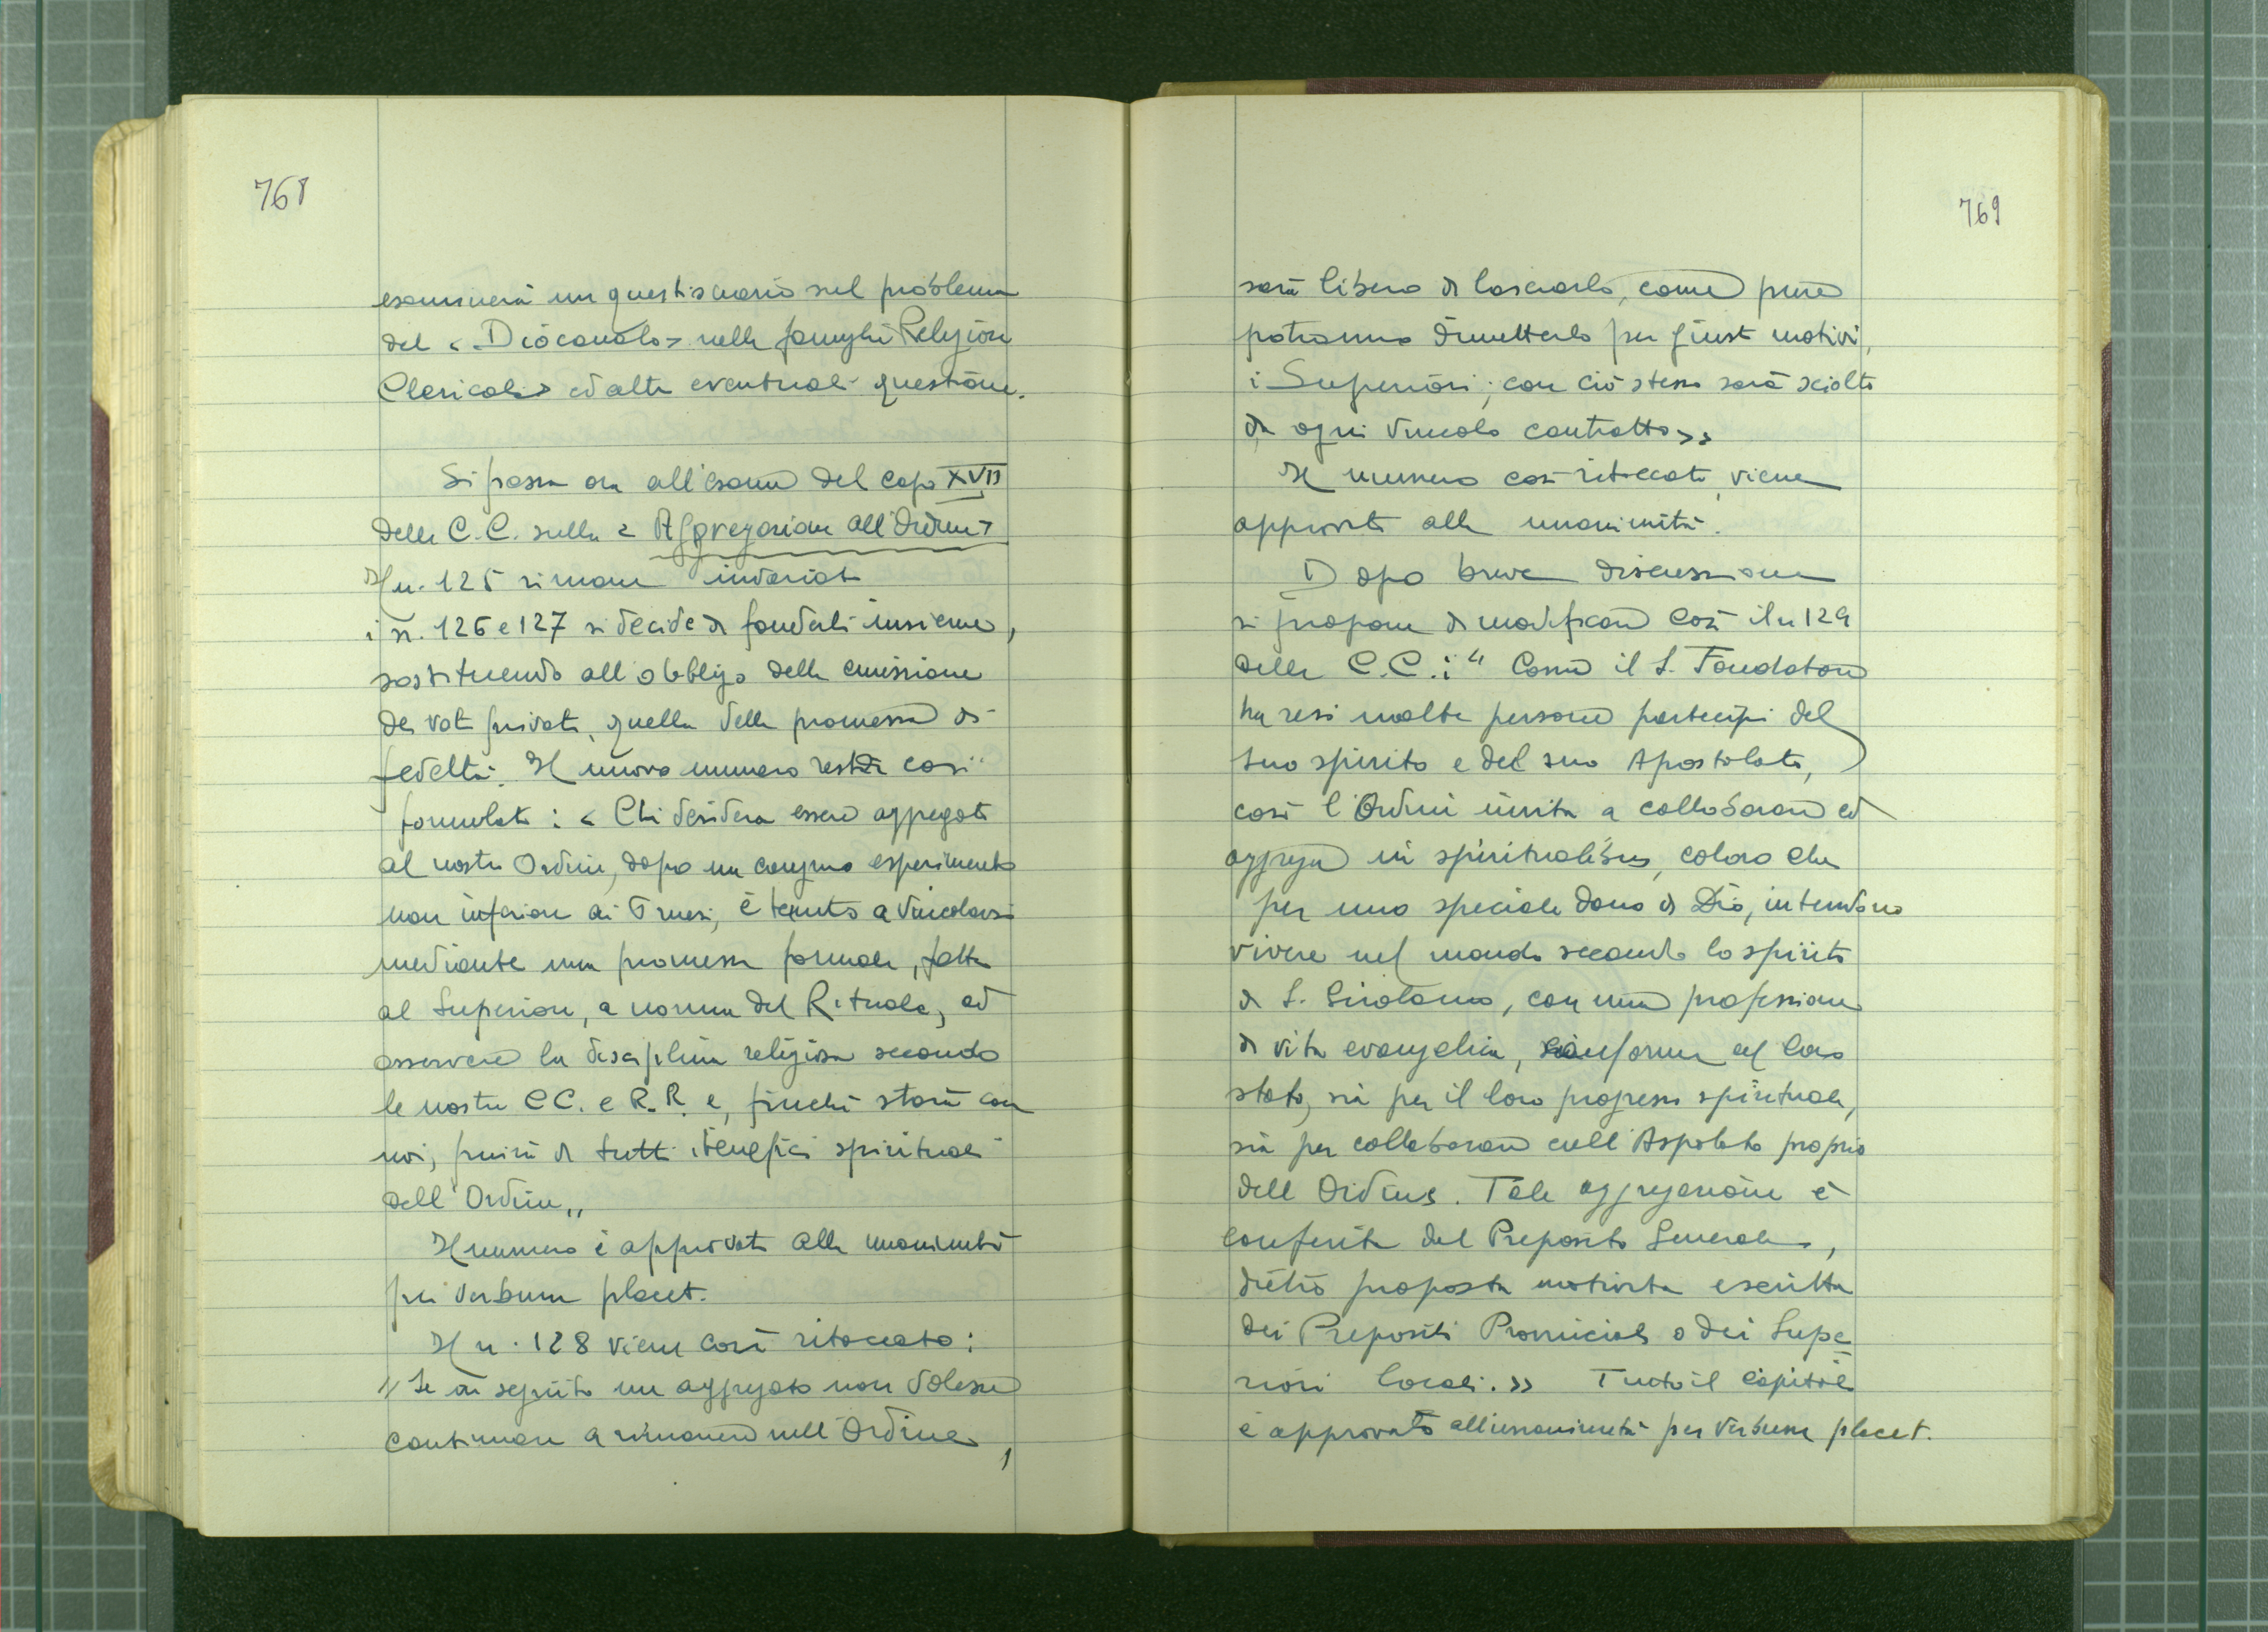 768
esaminerà un questionario sul problema
del «Diaconato» nelle famiglie Religiose
Clericali» ed altre eventuali questioni.
Si passa ora all'esame del capo XVII
delle C.C. sulla «Aggregazione all'Ordine»
Il n. 125 rimane invariato
i n. 126 e 127 si decide di fonderli insieme,
sostituendo all'obbligo della emissione
dei voti privati, quella della promessa di
fedeltà. Il nuovo numero resta così
formulato: «Chi desidera essere aggregato
al nostro Ordine, dopo un congruo esperimento
non inferiore ai 6 mesi, è tenuto a vincolarsi
mediante una promessa formale, fatta
al Superiore, a norma del Rituale, ad
osservare la disciplina religiosa secondo
le nostre CC. e R.R. e, finché starà con
noi, fruirà di tutti i benefici spirituali
dell'Ordine„
Il numero è approvato alla unanimità
per verbum placet.
Il n. 128 viene così ritoccato:
"Se in seguito un aggregato non volesse
continuare a rimanere nell'Ordine,
769
sarà libero di lasciarlo, come pure
potranno dimetterlo per giusti motivi,
i Superiori; con ciò stesso sarà sciolto
da ogni vincolo contratto»
Il numero così ritoccato, viene
approvato alla unanimità.
Dopo breve discussione
si propone di modificare così il n 129
delle C.C.: "Come il S. Fondatore
ha resi molte persone partecipi del
suo spirito e del suo Apostolato,
così l'Ordine invita a collaborare ed
aggrega in spiritualibus, coloro che
per uno speciale dono di Dio, intendono
vivere nel mondo secondo lo spirito
di S. Girolamo, con una professione
di vita evangelica, conforme al loro
stato, sia per il loro progresso spirituale,
sia per collaborare coll'Aspolato proprio
dell'Ordine. Tale aggregazione è
conferita dal Preposito Generale,
dietro proposta motivata e scritta
dei Prepositi Provinciali o dei Supe-
riori locali.» Tutto il capitolo
è approvato all'unanimità per verbum placet.